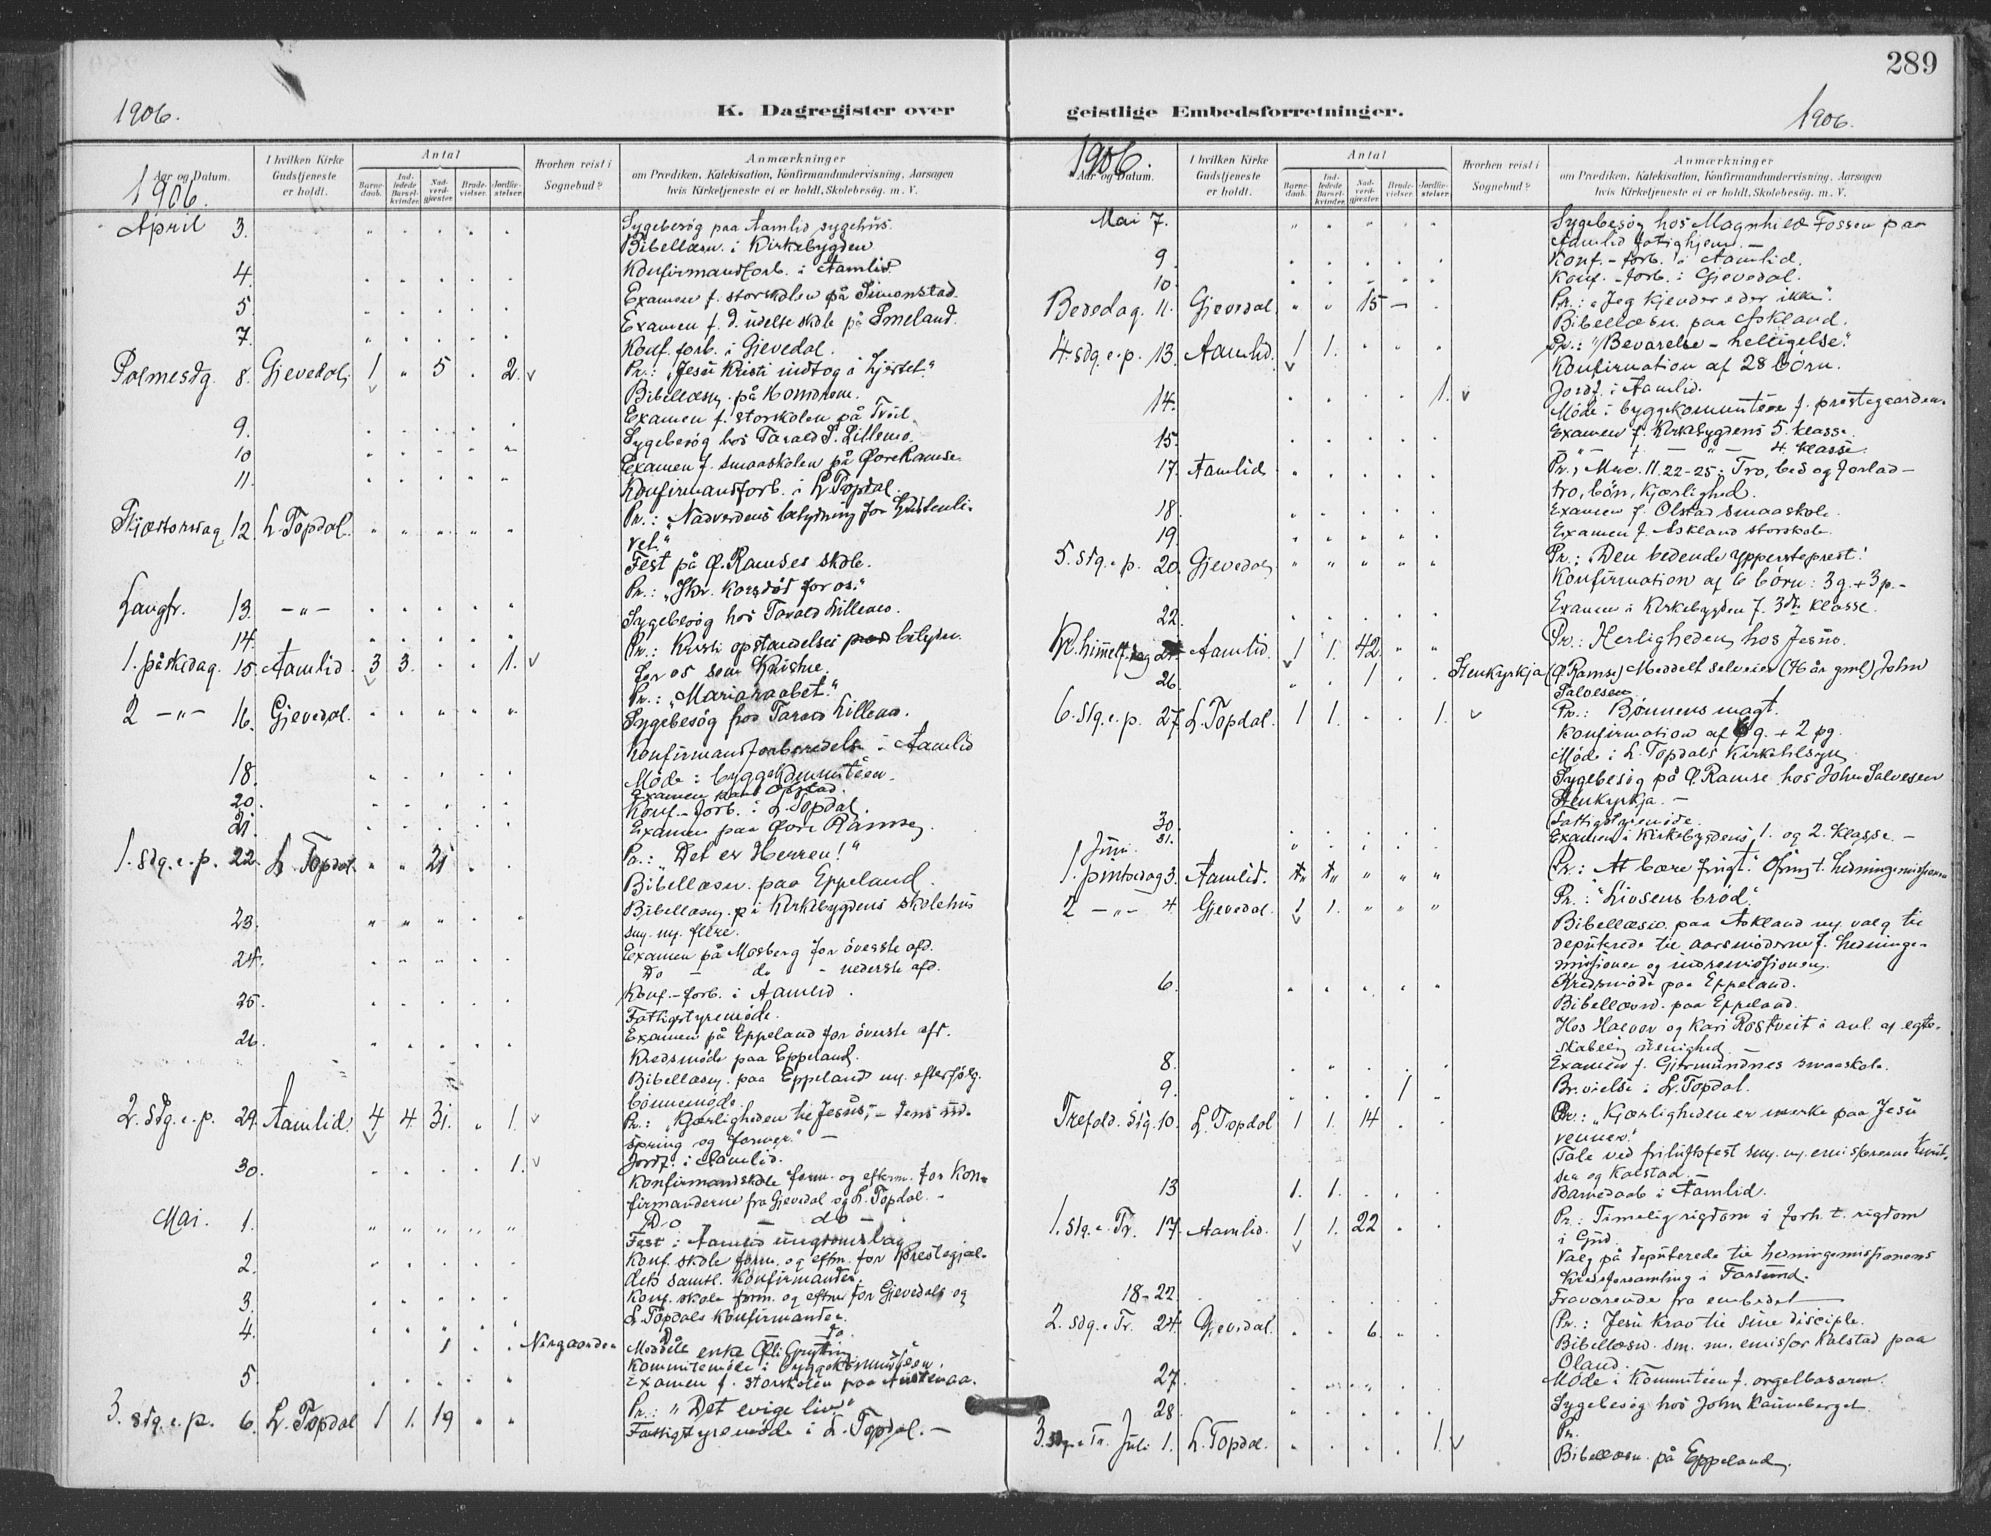 289
1906.
K. Dagregister over
geistlige Embedsforretninger.
1906.
Aar og Datum.
I hvilken Kirke Gudstjeneste er holdt.
Antal
Barnedaab.
Indledede Barselkvinder.
Nadverdgjester.
Brudevielser.
Jordfæstelser.
Hvorhen reist i Sognebud?
Anmærkninger
om Prædiken, Katekisation, Konfirmandundervisning, Aarsagen
hvis Kirketjeneste ei er holdt, Skolebesøg. m. V.
1906.
April 3. Sygebesög paa Aamlid sygehus.
Bibellæsn. i Kirkebygden
4. Konfirmandforb. i Aamlid.
5 Examen f. storskolen på Simonstad.
Examen f. d. udelte skole på Smeland.
7. Konf. forb. i Gjevedal.
Palmesdg. 8. Gjevedal 1 " 5 . 2. v Pr.: "Jesu Kristi indtog i hjertet."
Bibellæsn. på
Examen f. storskolen på
9. Sygebesög hos Tarald S. Lillemo.
10 Examen f. smaaskolen på Øvre Ramse.
11. Konfirmandforb. i L. Topdal.
Skjærtorsdag 12. L. Topdal. Pr.: "Nadverdens betydning for kristenli-
vet."
Fest på Ø. Ramses skole.
Langfr. 13. — " — Pr.: "Hr. korsdöd for os."
14. Sygebesög hos Tarald Lillemo.
1. påskedag. 15. Aamlid. 3 3. . . 1. v Pr.: Kristi opstandelses betydn.
for os som kristne.
2 — " — 16. Gjevedal. Pr.: "Mariaraabet."
Sygebesög hos Tarald Lillemo.
Konfirmandforberedelse i Aamlid
18. Möde i byggekommitéen.
Examen
20. Konf.-forb. i L. Topdal.
21. Examen paa Øvre Ramse.
1. sdg. e. p. 22. L. Topdal. " " 21 Pr.: "Det er Herren!"
Bibellæsn. paa Eppeland.
23. Bibellæsn. på Kirkebygdens skolehus
sm. m. flere.
24. Examen på Mosberg for överste afd.
Do — do - nederste afd.
25. Konf.-forb. i Aamlid.
Fattigstyremöde.
26. Examen på Eppeland for överste aft.
Kredsmöde paa Eppeland.
Bibellæsn. paa Eppeland m. efterfölg.
bönnemöde.
2. sdg. e. p. 29. Aamlid. 4 4 31. " 1. v Pr.: "Kjærligheden til Jesus; - dens ud-
spring og former." —
30. 1. v Jordf. i Aamlid.
Konfirmandskole form. og efterm. for kon-
firmanderne fra Gjevedal og L. Topdal. -
Mai. 1. Do — do —
Fest i Aamlid ungdomslag
2. Konf. skole form. og eftm. for prestegjæl-
dets samtl. konfirmander.
3. Konf. skole form. og eftm. for Gjevedals og
L. Topdals konfirmander.
4. Do do
1 Meddelt enke
5. Kommitemöde i byggekommitéen.
Examen f. storskolen paa Austenaa.
3. sdg. e. p. 6. L. Topdal 1 1. 19 Pr.: "Det evige liv"
Fattigstyremöde i L. Topdal. —
1906.
Aar og Datum.
I hvilken Kirke Gudstjeneste er holdt.
Antal
Barnedaab.
Indledede Barselkvinder.
Nadverdgjester.
Brudevielser.
Jordfæstelser.
Hvorhen reist i Sognebud?
Anmærkninger
om Prædiken, Katekisation, Konfirmandundervisning, Aarsagen
hvis Kirketjeneste ei er holdt, Skolebesøg. m. V.
Mai 7. Sygebesög hos Magnhild Fossen paa
Aamlid fatighjem. —
9. Konf.-forb. i Aamlid.
10. Konf.-forb. i Gjevedal.
Bededag. 11. Gjevedal " " 15 — Pr.: "Jeg kjender eder ikke".
Bibellæsn. paa Askland.
4. sdg. e. p. 13. Aamlid. 1 1. Pr.: "Bevarelse - helligelse."
Konfirmation af 28 börn.
14. 1. v Jordf. i Aamlid.
Möde i byggekommitéen f. prestegaarden.
15. Examen f. Kirkebygdens 5. klasse.
— " — + — " — 4. klasse.
17. Aamlid Pr.: Mrc. 11. 22-25: Tro, bed og forlad —
tro, bön, kjærlighed.
18. Examen f. Olstad smaaskole.
19. Examen f. Askland storskole.
5. sdg. e. p. 20. Gjevedal Pr.: Den bedende ypperteprest!
Konfirmation af 6 börn: 3 g. + 3 p. -
22. Examen i Kirkebygden f. 3die klasse.
Kr. himmelf. dag 24. Aamlid. 1 1. 42. Pr.: Herligheden hos Jesus.
26. 1 Stenkyrkja (Ø. Ramse) Meddelt selveier (76 år gml) John
Salvesen
6. sdg. e. p. 27. L. Topdal. 1 1. . . 1. v Pr.: Bönnens magt.
Konfirmation af 6 g. + 2 pg.
Möde i L. Topdals Kirketilsyn
Sygebesög på Ø. Ramse hos John Salvesen
Stenkyrkja. —
30. Fattigstyremöde.
31. Examen i Kirkebygdens 1. og 2. klasse. —
Juni.
1. pintsedag 3. Aamlid. Pr.: At bære frugt. Ofring t. hedningemissionen
2 — " — 4. Gjevedal. 1 1. Pr.: "Livsens bröd."
Bibellæsn. paa Askland m. valg til
deputerede til aarsmöderne f. hedninge-
missionen og indremissionen.
6. Kredsmöde paa Eppeland.
Bibellæsn. paa Eppeland.
Hos Halvor og Kari Rostveit i anl. af egte-
skabelig uenighed
8. Examen f. Gjermundnes smaaskole.
9. 1 Br. vielse i L. Topdal.
Trefold. sdg. 10. L. Topdal 1 1. 14 Pr.: "Kjærligheden er merke paa Jesu
venner."
Tale ved friluftsfest sm. m. emissærerne Knut-
sen og Kalstad.
13 1. 1. Barnedaab i Aamlid.
1. sdg. e. Tr. 17. Aamlid. 1 1. 22 Pr.: Timelig rigdom i forh. t. rigdom
i Gud.
Valg på deputerede til hedningemissionens
kredsforsamling i Farsund.
18-22. Fraværende fra embedet
2. sdg. e. Tr. 24. Gjevedal. 6 Pr.: Jesu krav til sine disciple.
Bibellæsn. sm. m. emissær Kalstad paa
Oland.
27. Möde i kommitéen f. orgelbasaren.
28 Sygebesög hos John
3. sdg. e. Tr. Juli 1. L. Topdal. 1. v Pr.
Bibellæsn. på Eppeland.